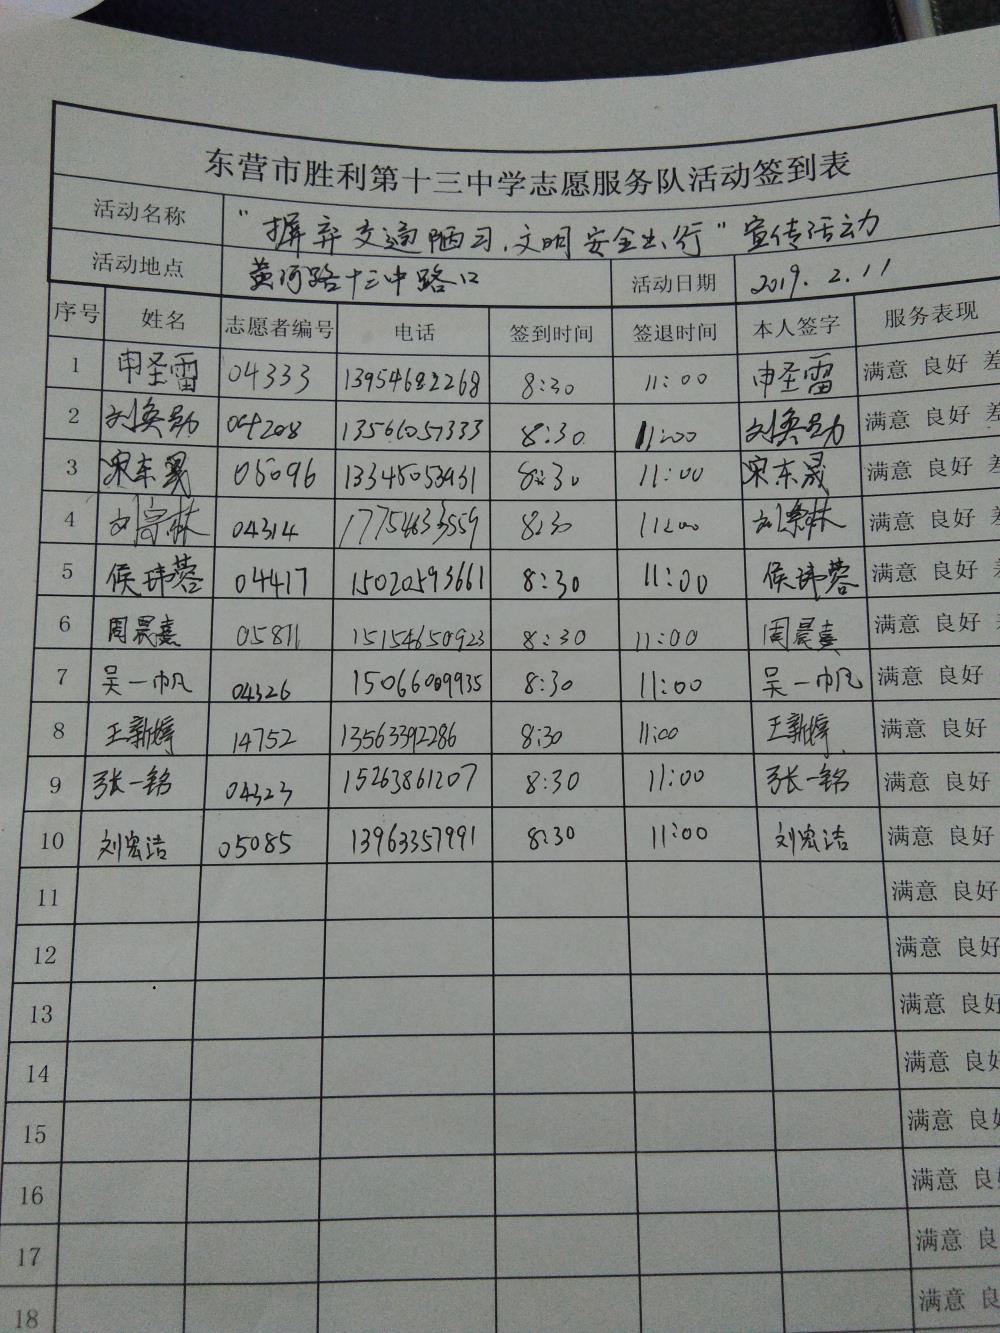 东营市胜利第十三中学志愿服务队活动签到表
活动名称 "摒弃交通陋习,文明安全出行"宣传活动
活动地点 黄河路十三中路口 活动日期 2019.2.11
序号 姓名 志愿者编号 电话 签到时间 签退时间 本人签字 服务表现
1 申圣雷 04333 13954682268 8:30 11:00 申圣雷 满意 良好 差
2 刘奂勋 04208 13561057333 8:30 11:00 刘奂勋 满意 良好 差
3 宋东晟 05096 13345053431 8:30 11:00 宋东晟 满意 良好 差
4 04314 17754633559 8:30 11:00 满意 良好 差
5 侯玮蓉 04417 15020593661 8:30 11:00 侯玮蓉 满意 良好 差
6 周晨熹 05871 15154650923 8:30 11:00 周晨熹 满意 良好
7 吴一帆 04326 15066009935 8:30 11:00 吴一帆 满意 良好
8 王新婷 14752 13563392286 8:30 11:00 王新婷 满意 良好
9 张一铭 04323 15263861207 8:30 11:00 张一铭 满意 良好
10 刘宏洁 05085 13963357991 8:30 11:00 刘宏洁 满意 良好
11 满意 良好
12 满意 良好
13 满意 良好
14 满意 良好
15 满意 良好
16 满意 良
17 满意 良
18 满意 良